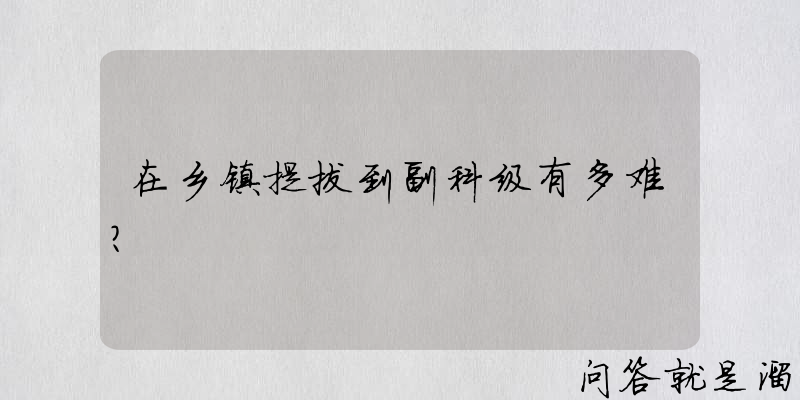 在乡镇提拔到副科级有多难
?
问答就是溜